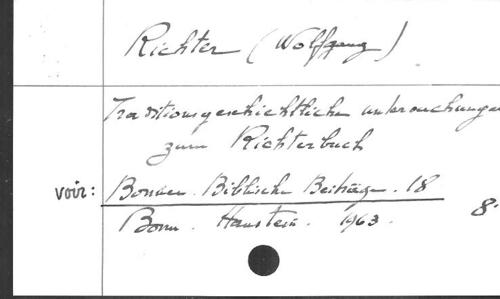 Richter (Wolfgang)
Traditionsgeschichtliche untersuchungen
zum Richterbuch
voir: Bonner. Biblische Beiträge. 18
Bonn. Hanstein. 1963. 8°